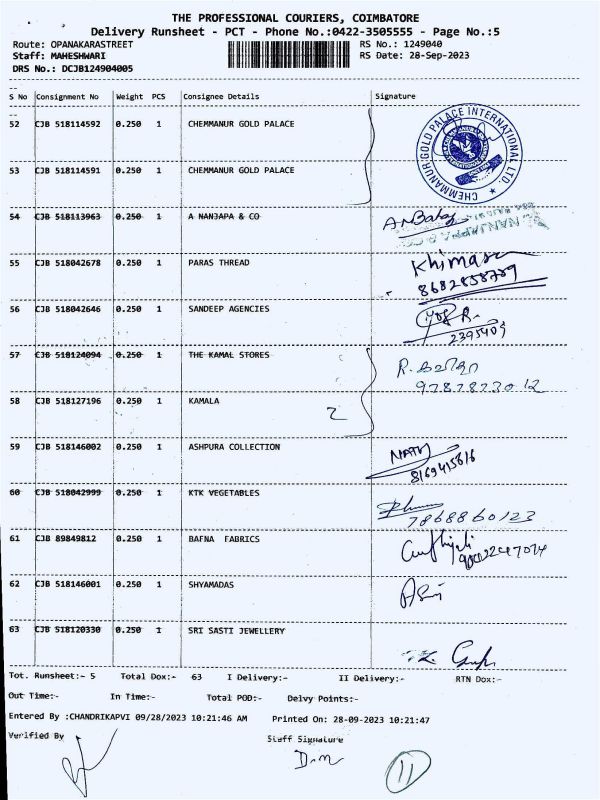 THE PROFESSIONAL COURIERS, COIMBATORE
Delivery Runsheet - PCT - Phone No.:0422-3505555 - Page No.:5
Route: OPANAKARASTREET
RS No.: 1249040
Staff: MAHESHWARI
RS Date: 28-Sep-2023
DRS No.: DCJB124904005
S No Consignment No Weight PCS Consignee Details Signature
52 CJB 518114592 0.250 1 CHEMMANUR GOLD PALACE
CHEMMANUR GOLD PALACE INTERNATIONAL LTD.
53 CJB 518114591 0.250 1 CHEMMANUR GOLD PALACE
54 CJB 518113963 0.250 1 A NANJAPA & CO
55 CJB 518042678 0.250 1 PARAS THREAD
8682858789
56 CJB 518042646 0.250 1 SANDEEP AGENCIES
2395409
57 CJB 518124094 0.250 1 THE KAMAL STORES
58 CJB 518127196 0.250 1 KAMALA
2
59 CJB 518146002 0.250 1 ASHPURA COLLECTION
60 CJB 518042999 0.250 1 KTK VEGETABLES
7868860123
61 CJB 89849812 0.250 1 BAFNA FABRICS
62 CJB 518146001 0.250 1 SHYAMADAS
63 CJB 518120330 0.250 1 SRI SASTI JEWELLERY
Tot. Runsheet:- 5 Total Dox:- 63 I Delivery:- II Delivery:- RTN Dox:-
Out Time:- In Time:- Total POD:- Delvy Points:-
Entered By :CHANDRIKAPVI 09/28/2023 10:21:46 AM Printed On: 28-09-2023 10:21:47
Verified By Staff Signature
11